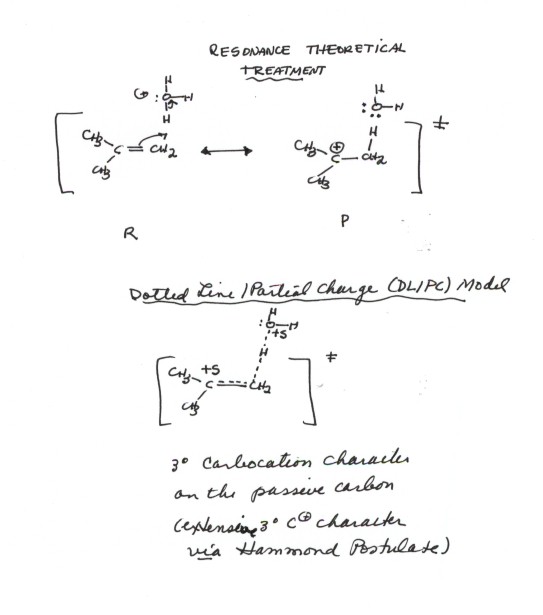 RESONANCE THEORETICAL
TREATMENT
H
⊕ : O — H
H
CH3
C = CH2
CH3
R
H
: O — H
H
CH3 ⊕
C — CH2
CH3
‡
P
Dotted Line / Partial Charge (DL/PC) Model
H
: O — H
+δ
H
CH3 +δ
C CH2
CH3
‡
3° Carbocation character
on the passive carbon
(extensive 3° C⊕ character
via Hammond Postulate)